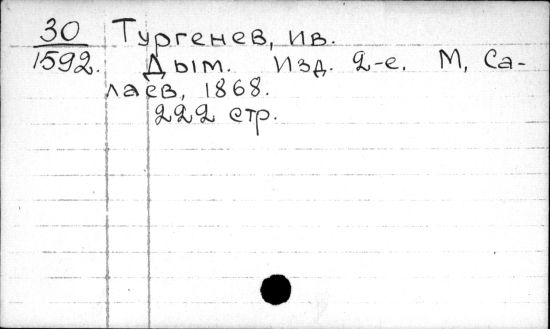 30 Тургенев, Ив.
1592. Дым. Изд. 2-е. М, Са-
лаев, 1868.
222 стр.